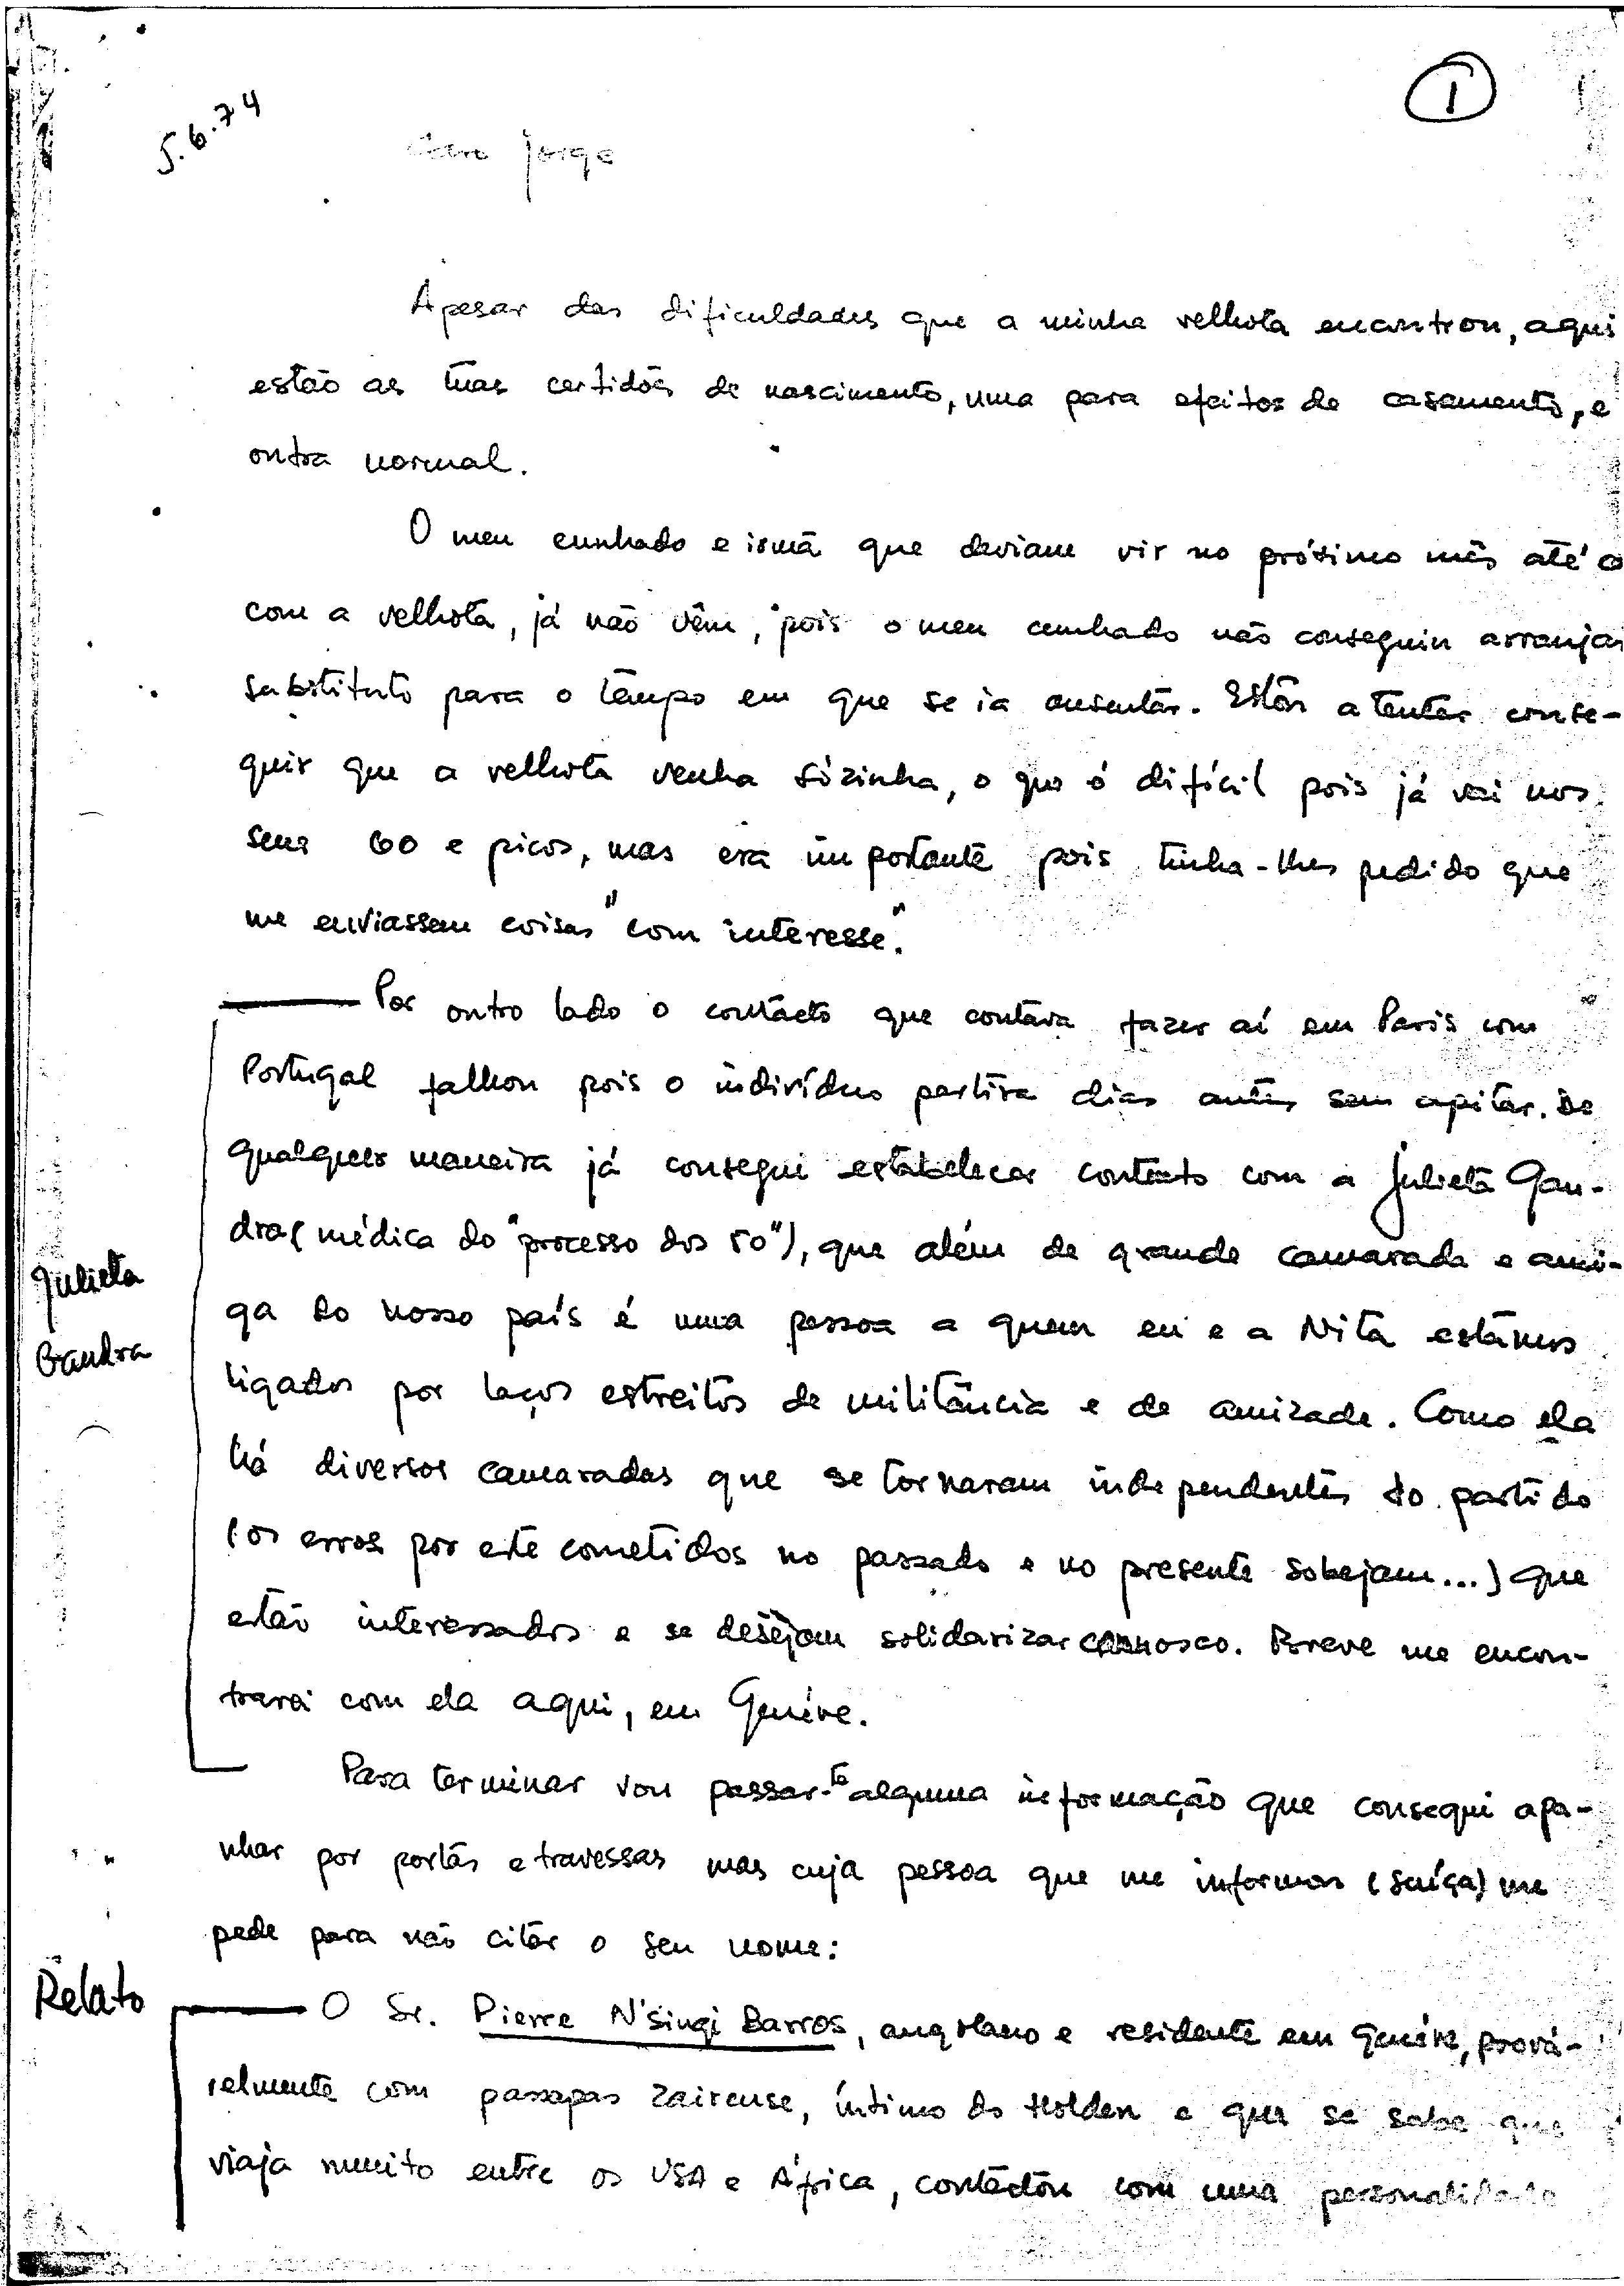 ①
5.6.74
Caro Jorge
Apesar das dificuldades que a minha velhota encontrou, aqui
estão as tuas certidões de nascimento, uma para efeitos de casamento, e
outra normal.
O meu cunhado e irmã que deviam vir no próximo mês até
com a velhota, já não vêm, pois o meu cunhado não conseguiu arranjar
substituto para o tempo em que se ia ausentar. Estou a tentar conse-
guir que a velhota venha sòzinha, o que é difícil pois já vai nos
seus 60 e picos, mas era importante pois tinha-lhes pedido que
me enviassem coisas "com interesse".
Por outro lado o contácto que contava fazer aí em Paris com
Portugal falhou pois o indivíduo partira dias antes sem apitar. De
qualquer maneira já consegui estabelecer contacto com a Julieta Gan-
dra (médica do "processo dos 50"), que além de grande camarada e ami-
ga do nosso país é uma pessoa a quem eu e a Nita estamos
ligados por laços estreitos de militância e de amizade. Como ela
há diversos camaradas que se tornaram independentes do partido
(os erros por este cometidos no passado e no presente sobejam...) que
estão interessados e se desejam solidarizar connosco. Breve me encon-
trarei com ela aqui, em Genève.
Julieta
Gandra
Para terminar vou passar-te alguma informação que consegui apa-
nhar por portas e travessas mas cuja pessoa que me informou (suíça) me
pede para não citar o seu nome:
Relato
O Sr. Pierre N'Singi Barros, angolano e residente em Genève, prová-
velmente com passapas zairense, íntimo do Holden e que se sabe que
viaja muito entre os USA e África, contáctou com uma personalidade